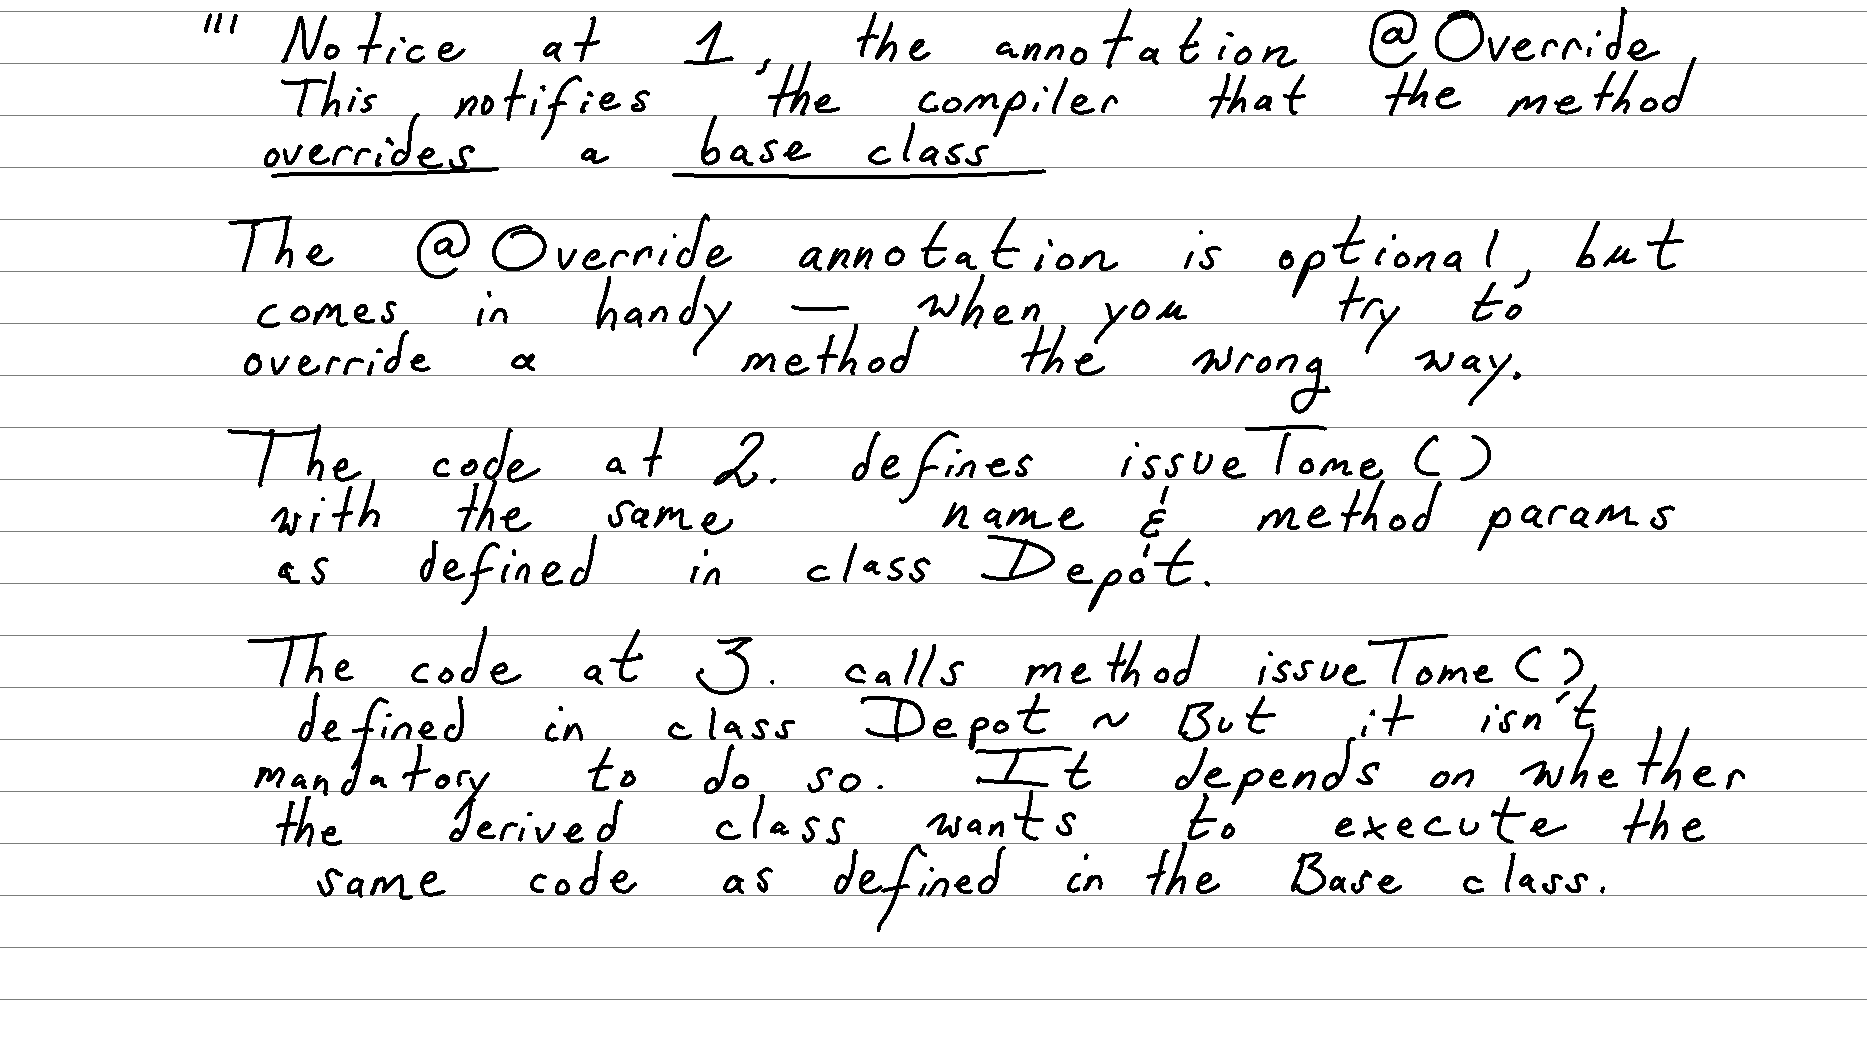 ''' Notice at 1, the annotation @Override,
This notifies the compiler that the method
overrides a base class
The @Override annotation is optional, but
comes in handy — when you try to
override a method the wrong way.
The code at 2. defines issueTome()
with the same name & method params
as defined in class Depot.
The code at 3. calls method issueTome()
defined in class Depot ~ But it isn't
mandatory to do so. It depends on whether
the derived class wants to execute the
same code as defined in the Base class.